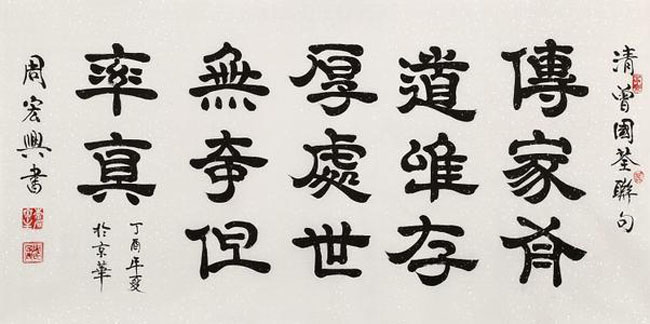 清曾國荃聯句
傳家有
道唯存
厚處世
無奇但
率真
丁酉年夏
於京華
周宏興書